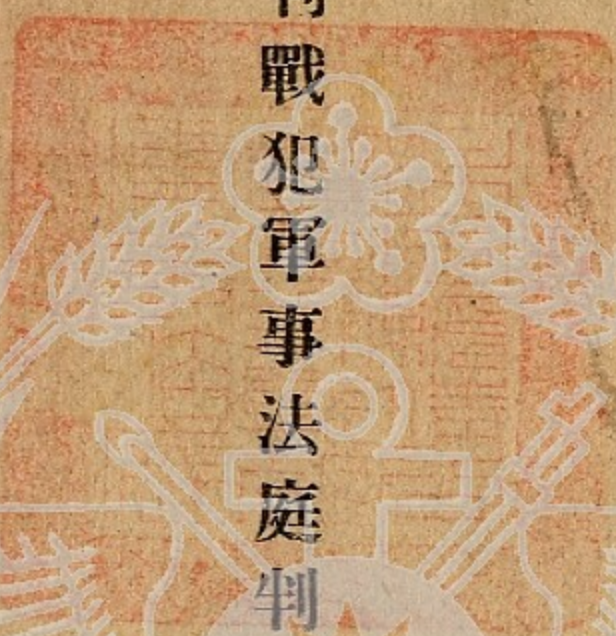 戰犯軍事法庭判